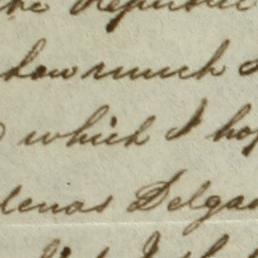 the Republic
how much I
which I hop
denas Delgad